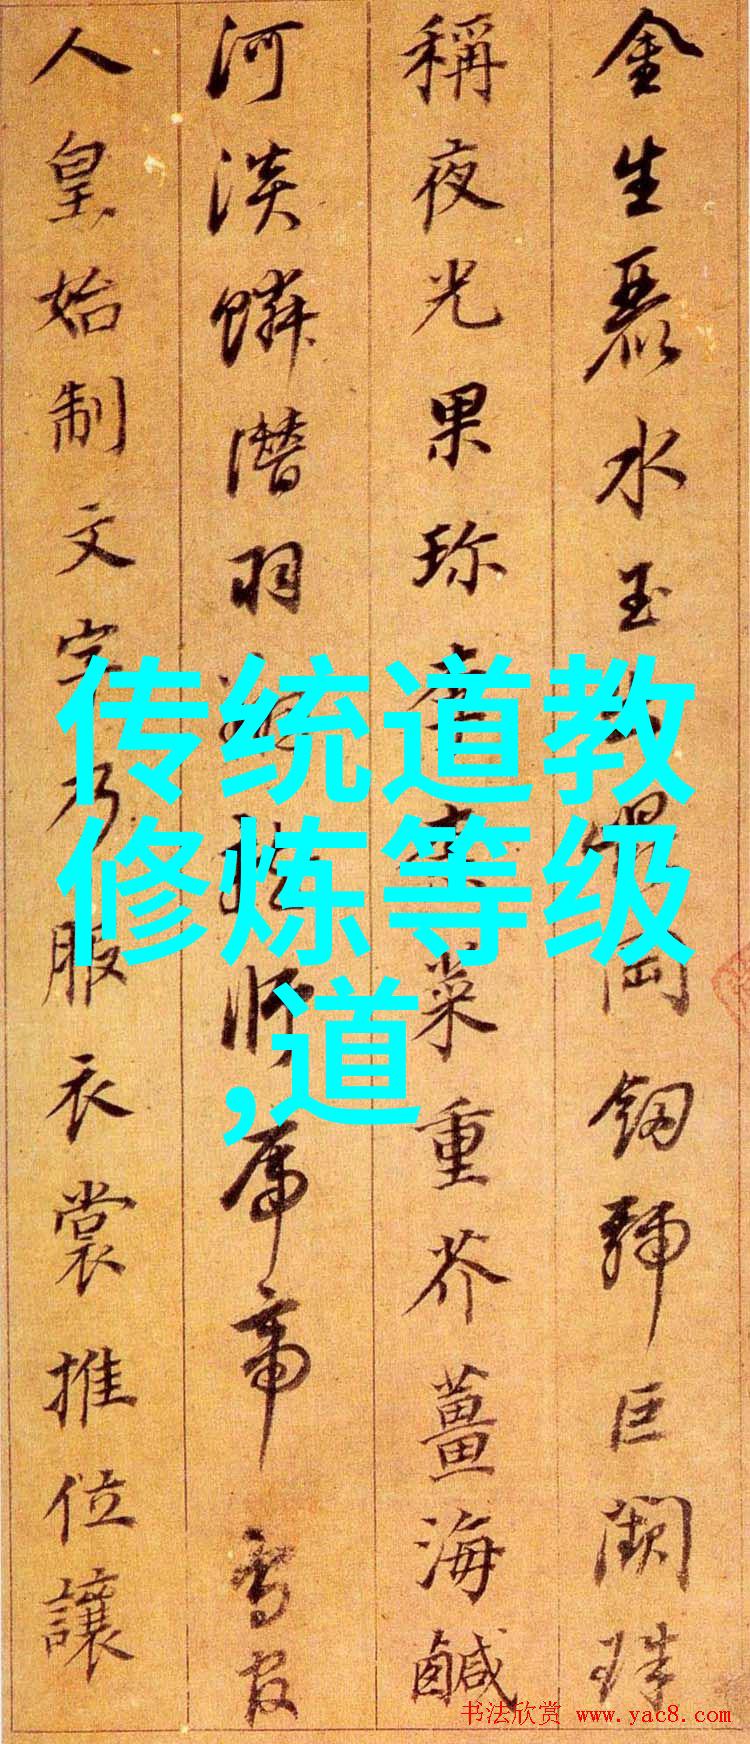 金生麗水玉崑岡劒號巨闕珠
稱夜光果珍李柰菜重芥薑海鹹
河淡鱗潛羽翔師帝鳥官
人皇始制文字乃服衣裳推位讓
传统道教
修炼等级
,道
书法欣赏 www.yac8.com